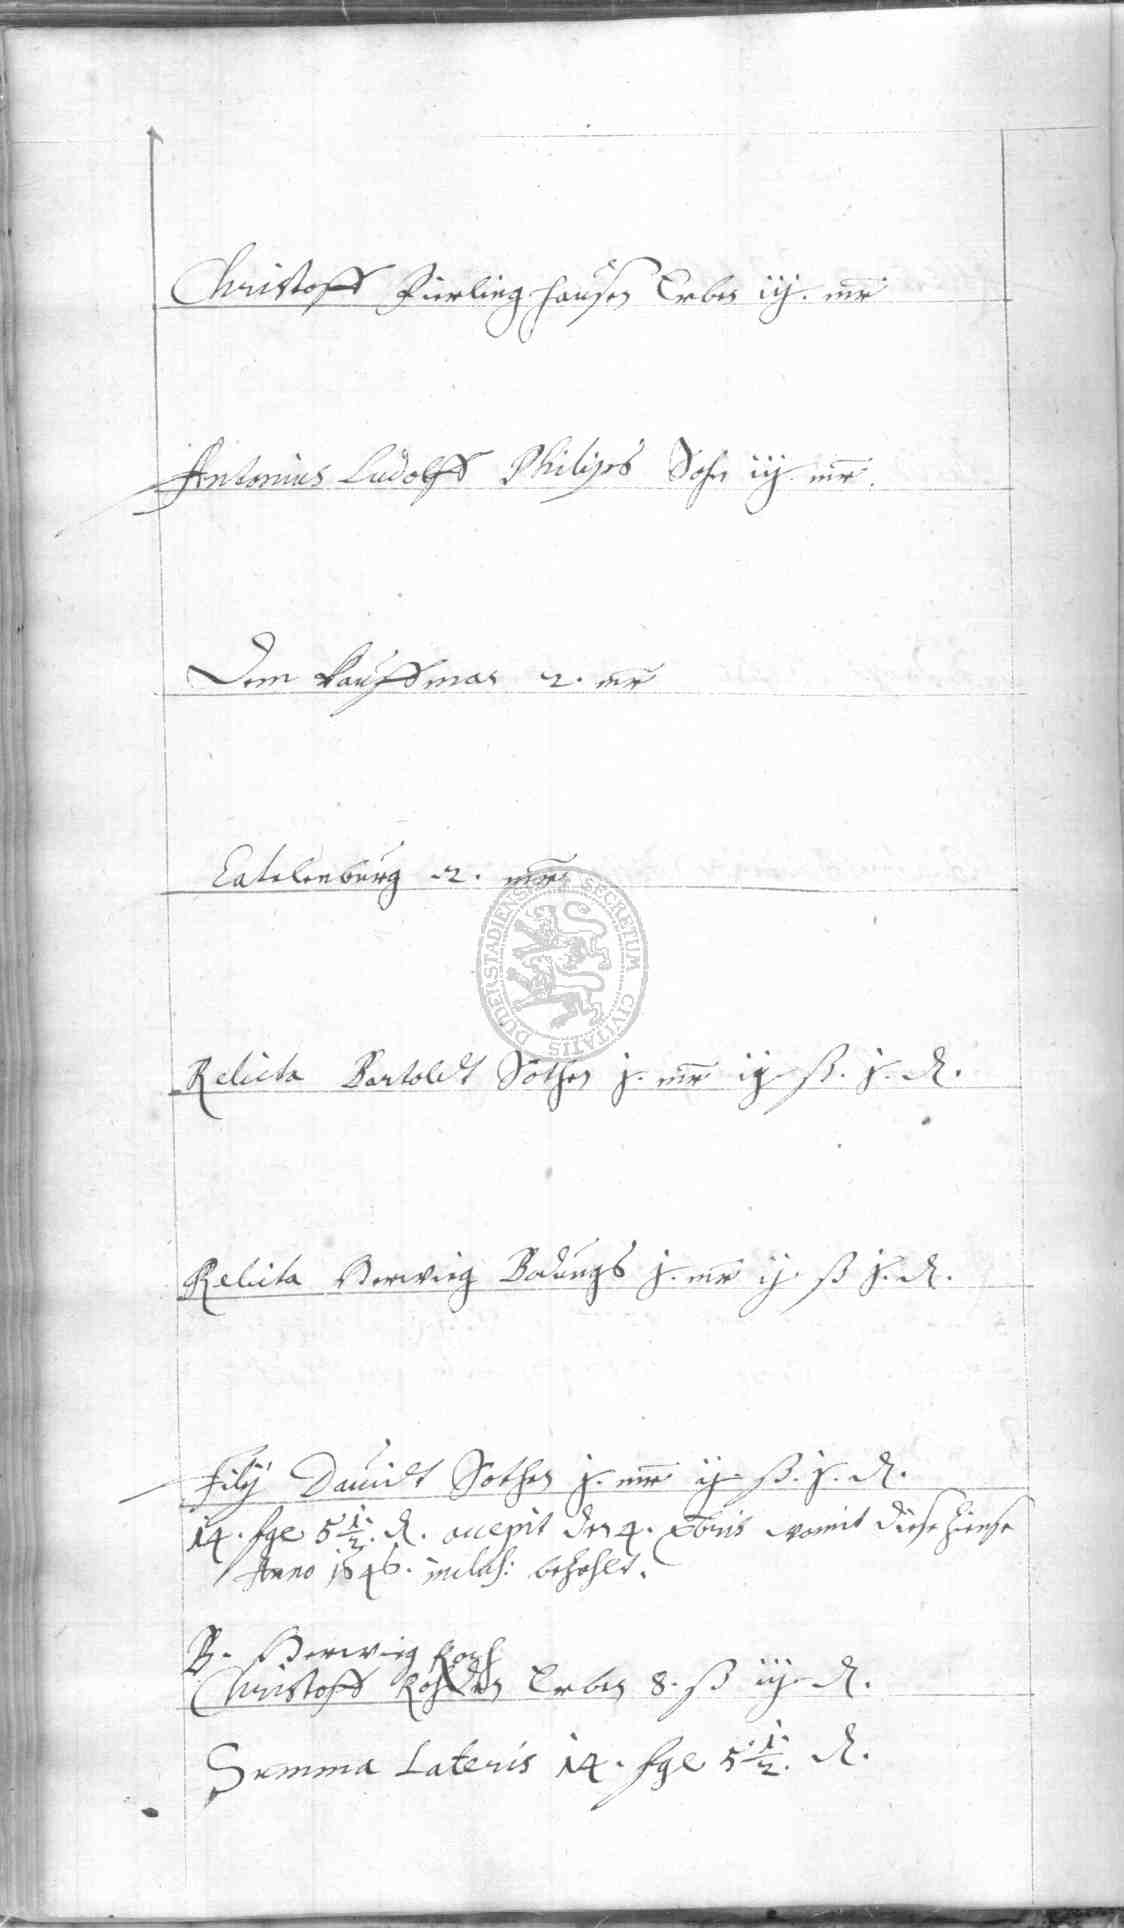 Christoff Pierling hausen Erben iij. mr
Antonius Ludolff Philips Sohn iij. mr.
Dem Kauffman 2. mr
Catelenburg 2. mr
DUDERSTADIENSIS SECRETUM CIVITATIS
Relicta Bartoldt Sothen j. mr ij ß. j. d.
Relicta Herwieg Bodungs j. mr ij ß j. d.
Filij Davidt Sothen j. mr ij ß. j. d.
14. fgl 5 1/2. d. accepit den 4. Xbris womit diese Zinse
Anno 1646. inclus: bezahlt.
B. Herwieg Koch
Christoff Erben 8. ß iij d.
Summa Lateris 14. fgl 5 1/2. d.